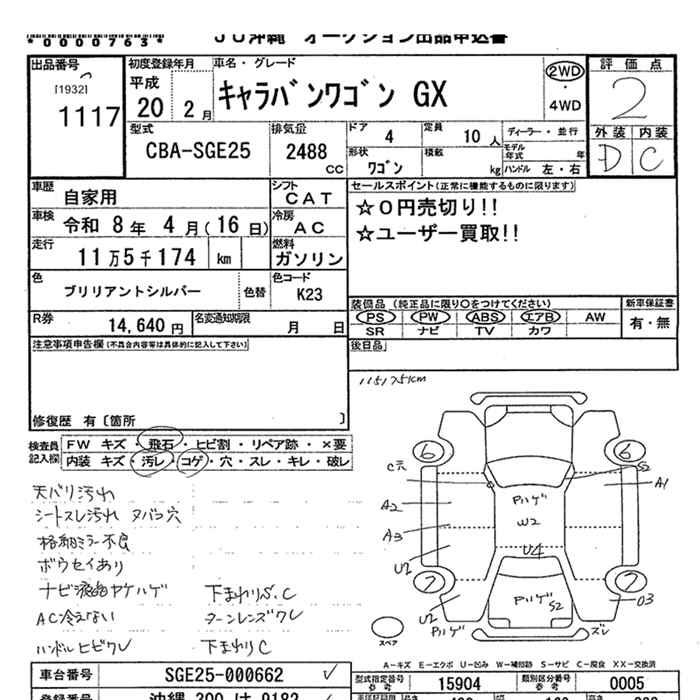 *0000763*
JU沖縄 オークション出品申込書
出品番号 初度登録年月 車名・グレード 評価点
[1932] 1117
平成 20 2月 キャラバンワゴン GX 2WD・4WD
2
外装 内装
D C
型式 CBA-SGE25 排気量 2488 CC
ドア 4 定員 10人 ディーラー・並行
形状 ワゴン 積載 kg モデル年式 年
ハンドル 左・右
車歴 自家用 シフト CAT
セールスポイント(正常に機能するものに限ります)
車検 令和 8年 4月(16日) 冷房 AC
☆0円売切り!!
☆ユーザー買取!!
走行 11万5千174 km 燃料 ガソリン
色 ブリリアントシルバー 色替 色コード K23
装備品(純正品に限り○をつけてください) 新車保証書
PS PW ABS エアB AW 有・無
SR ナビ TV カワ
R券 14,640円 名変通知期限 月 日
後日品
注意事項申告欄(不具合内容等は具体的に記入して下さい)
修復歴 有〔箇所 〕
115175km
検査員記入欄
FW キズ・飛石・ヒビ割・リペア跡・×要
内装 キズ・汚レ・コゲ・穴・スレ・キレ・破レ
天バリ汚れ
シートスレ汚れ タバコ穴
格納ミラー不良
ボウセイあり
ナビ液晶ヤケハゲ 下まわりS.C
AC冷えない ターンレンズワレ
ハンドルヒビワレ 下まわりC
6 6
C穴 S2
A2 A1
A3
U2
Pハゲ
W2
U4
7 7
U2 Pハゲ
Pハゲ S2
U3
ズレ
スペア
A-キズ E-エクボ U-凹み W-補修跡 S-サビ C-腐食 XX-交換済
車台番号 SGE25-000662 ✓
型式指定番号 参考 15904 類別区分番号 参考 0005
登録番号 沖縄 300 は 9182